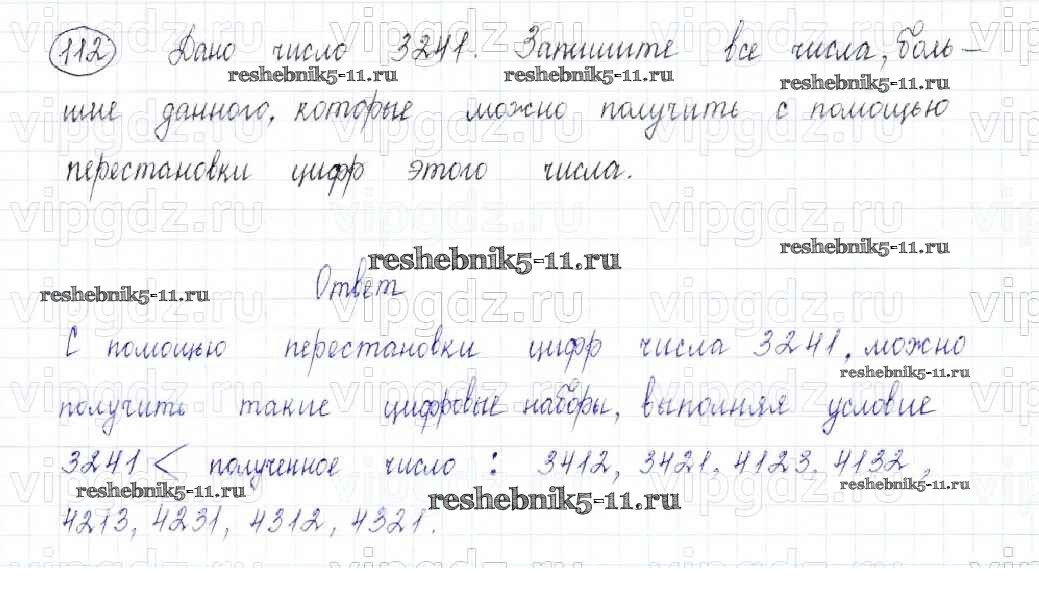 112 Дано число 3241. Запишите все числа, боль-
reshebnik5-11.ru reshebnik5-11.ru reshebnik5-11.ru
шие данного, которые можно получить с помощью
перестановки цифр этого числа.
vipgdz.ru vipgdz.ru vipgdz.ru
reshebnik5-11.ru reshebnik5-11.ru
reshebnik5-11.ru Ответ
С помощью перестановки цифр числа 3241, можно
reshebnik5-11.ru
получить такие цифровые наборы, выполняя условие
3241 < полученное число : 3412, 3421, 4123, 4132,
reshebnik5-11.ru reshebnik5-11.ru reshebnik5-11.ru
4213, 4231, 4312, 4321.